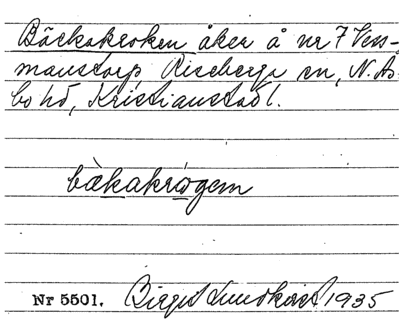 Bäckakroken åker å nr 7 Vess-
manstorp Riseberga sn, N. Ås-
bo hd, Kristianstads l.
bækakrógem
Nr 5501. Birgit 1935